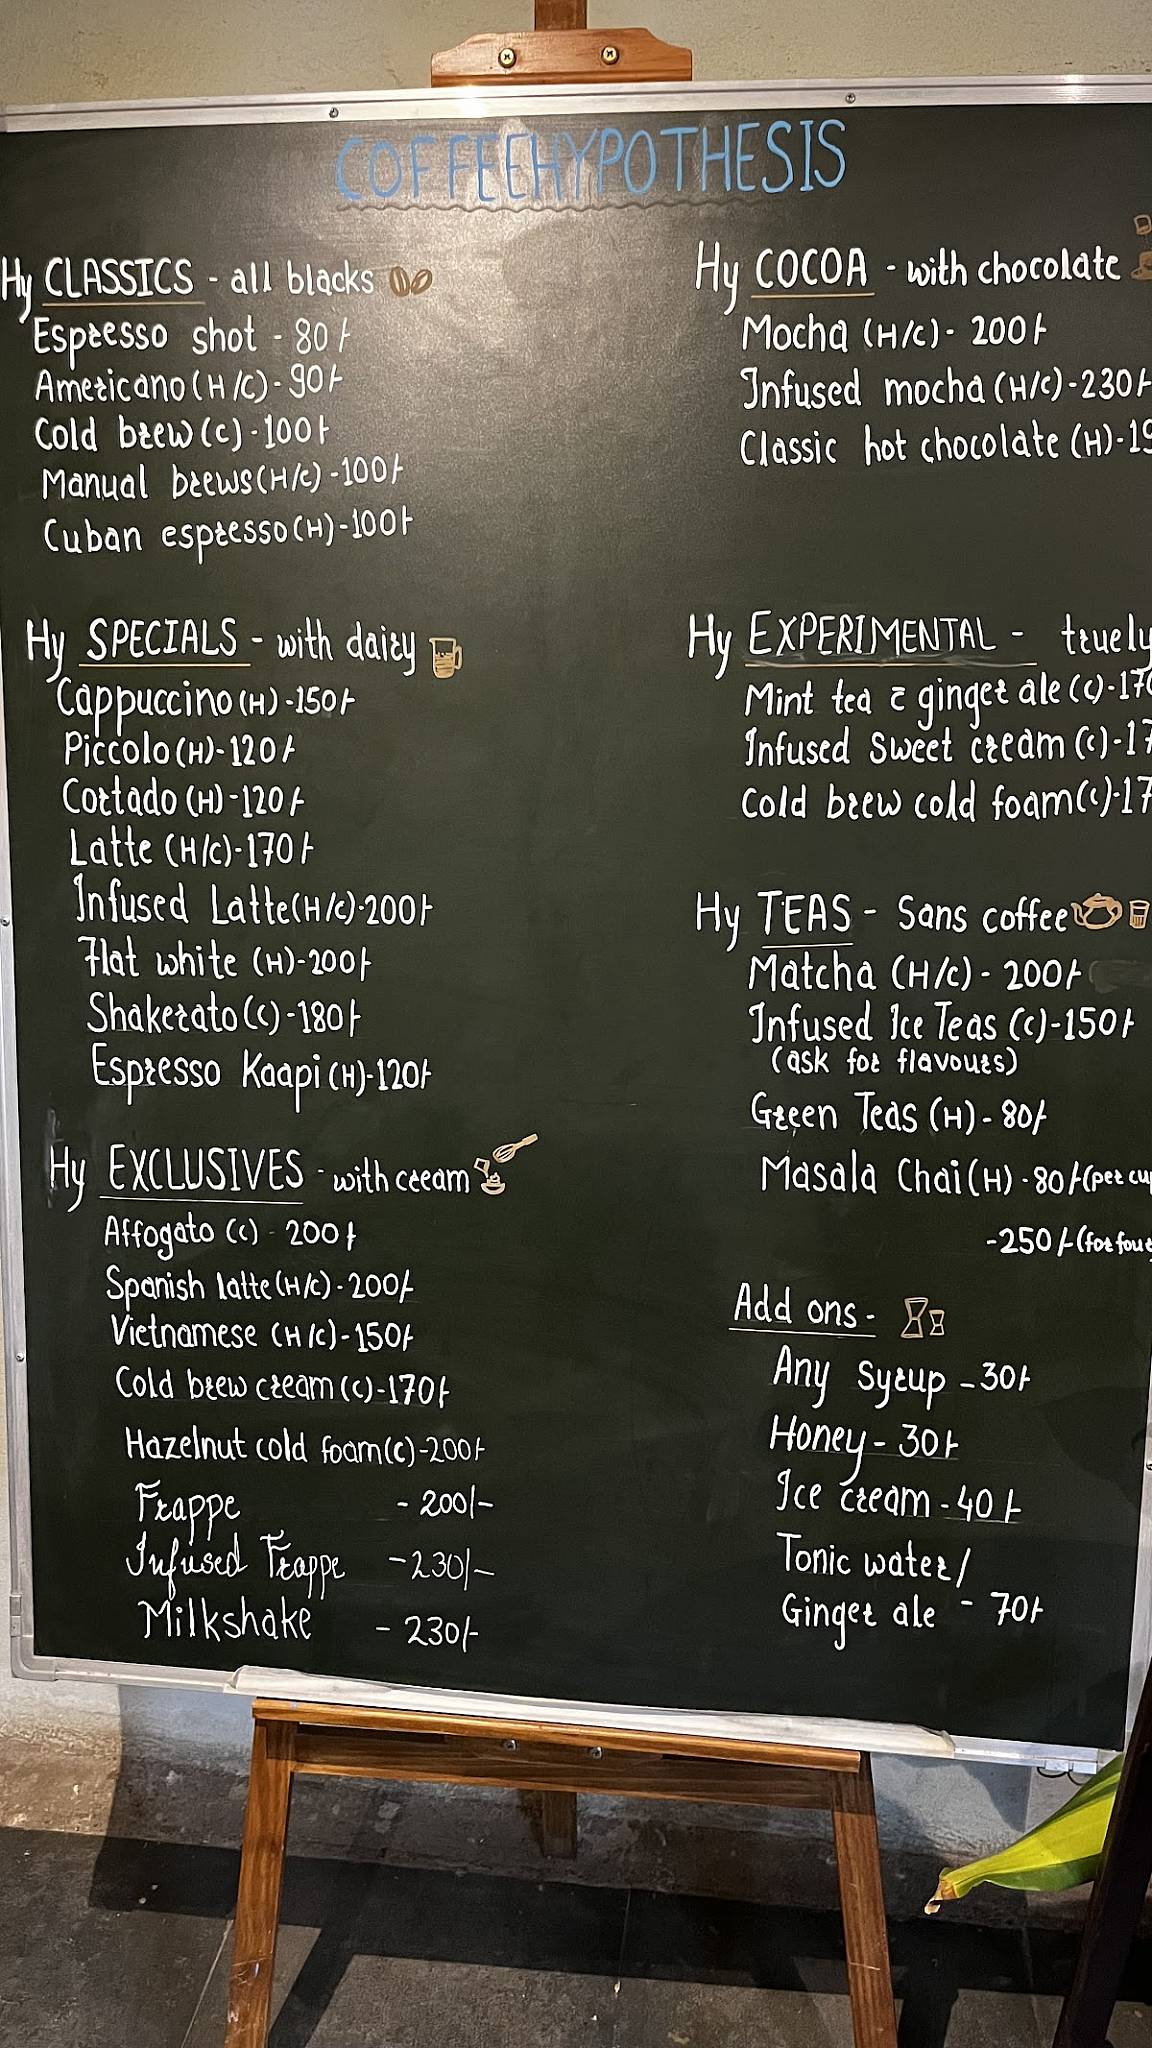 COFFEEHYPOTHESIS
Hy CLASSICS - all blacks
Espresso shot - 80/-
Americano (H/C) - 90/-
Cold brew (C) - 100/-
Manual brews (H/C) - 100/-
Cuban espresso (H) - 100/-
Hy SPECIALS - with dairy
Cappuccino (H) - 150/-
Piccolo (H) - 120/-
Cortado (H) - 120/-
Latte (H/C) - 170/-
Infused Latte (H/C) - 200/-
Flat white (H) - 200/-
Shakerato (C) - 180/-
Espresso Kaapi (H) - 120/-
Hy EXCLUSIVES - with cream
Affogato (C) - 200/-
Spanish latte (H/C) - 200/-
Vietnamese (H/C) - 150/-
Cold brew cream (C) - 170/-
Hazelnut cold foam (C) - 200/-
Frappe - 200/-
Infused Frappe - 230/-
Milkshake - 230/-
Hy COCOA - with chocolate
Mocha (H/C) - 200/-
Infused mocha (H/C) - 230/-
Classic hot chocolate (H) -
Hy EXPERIMENTAL - truely
Mint tea & ginger ale (C) -
Infused Sweet cream (C) -
Cold brew cold foam (C) -
Hy TEAS - Sans coffee
Matcha (H/C) - 200/-
Infused Ice Teas (C) - 150/-
(ask for flavours)
Green Teas (H) - 80/-
Masala Chai (H) - 80/- (per
- 250/- (for
Add ons -
Any Syrup - 30/-
Honey - 30/-
Ice cream - 40/-
Tonic water/
Ginger ale - 70/-